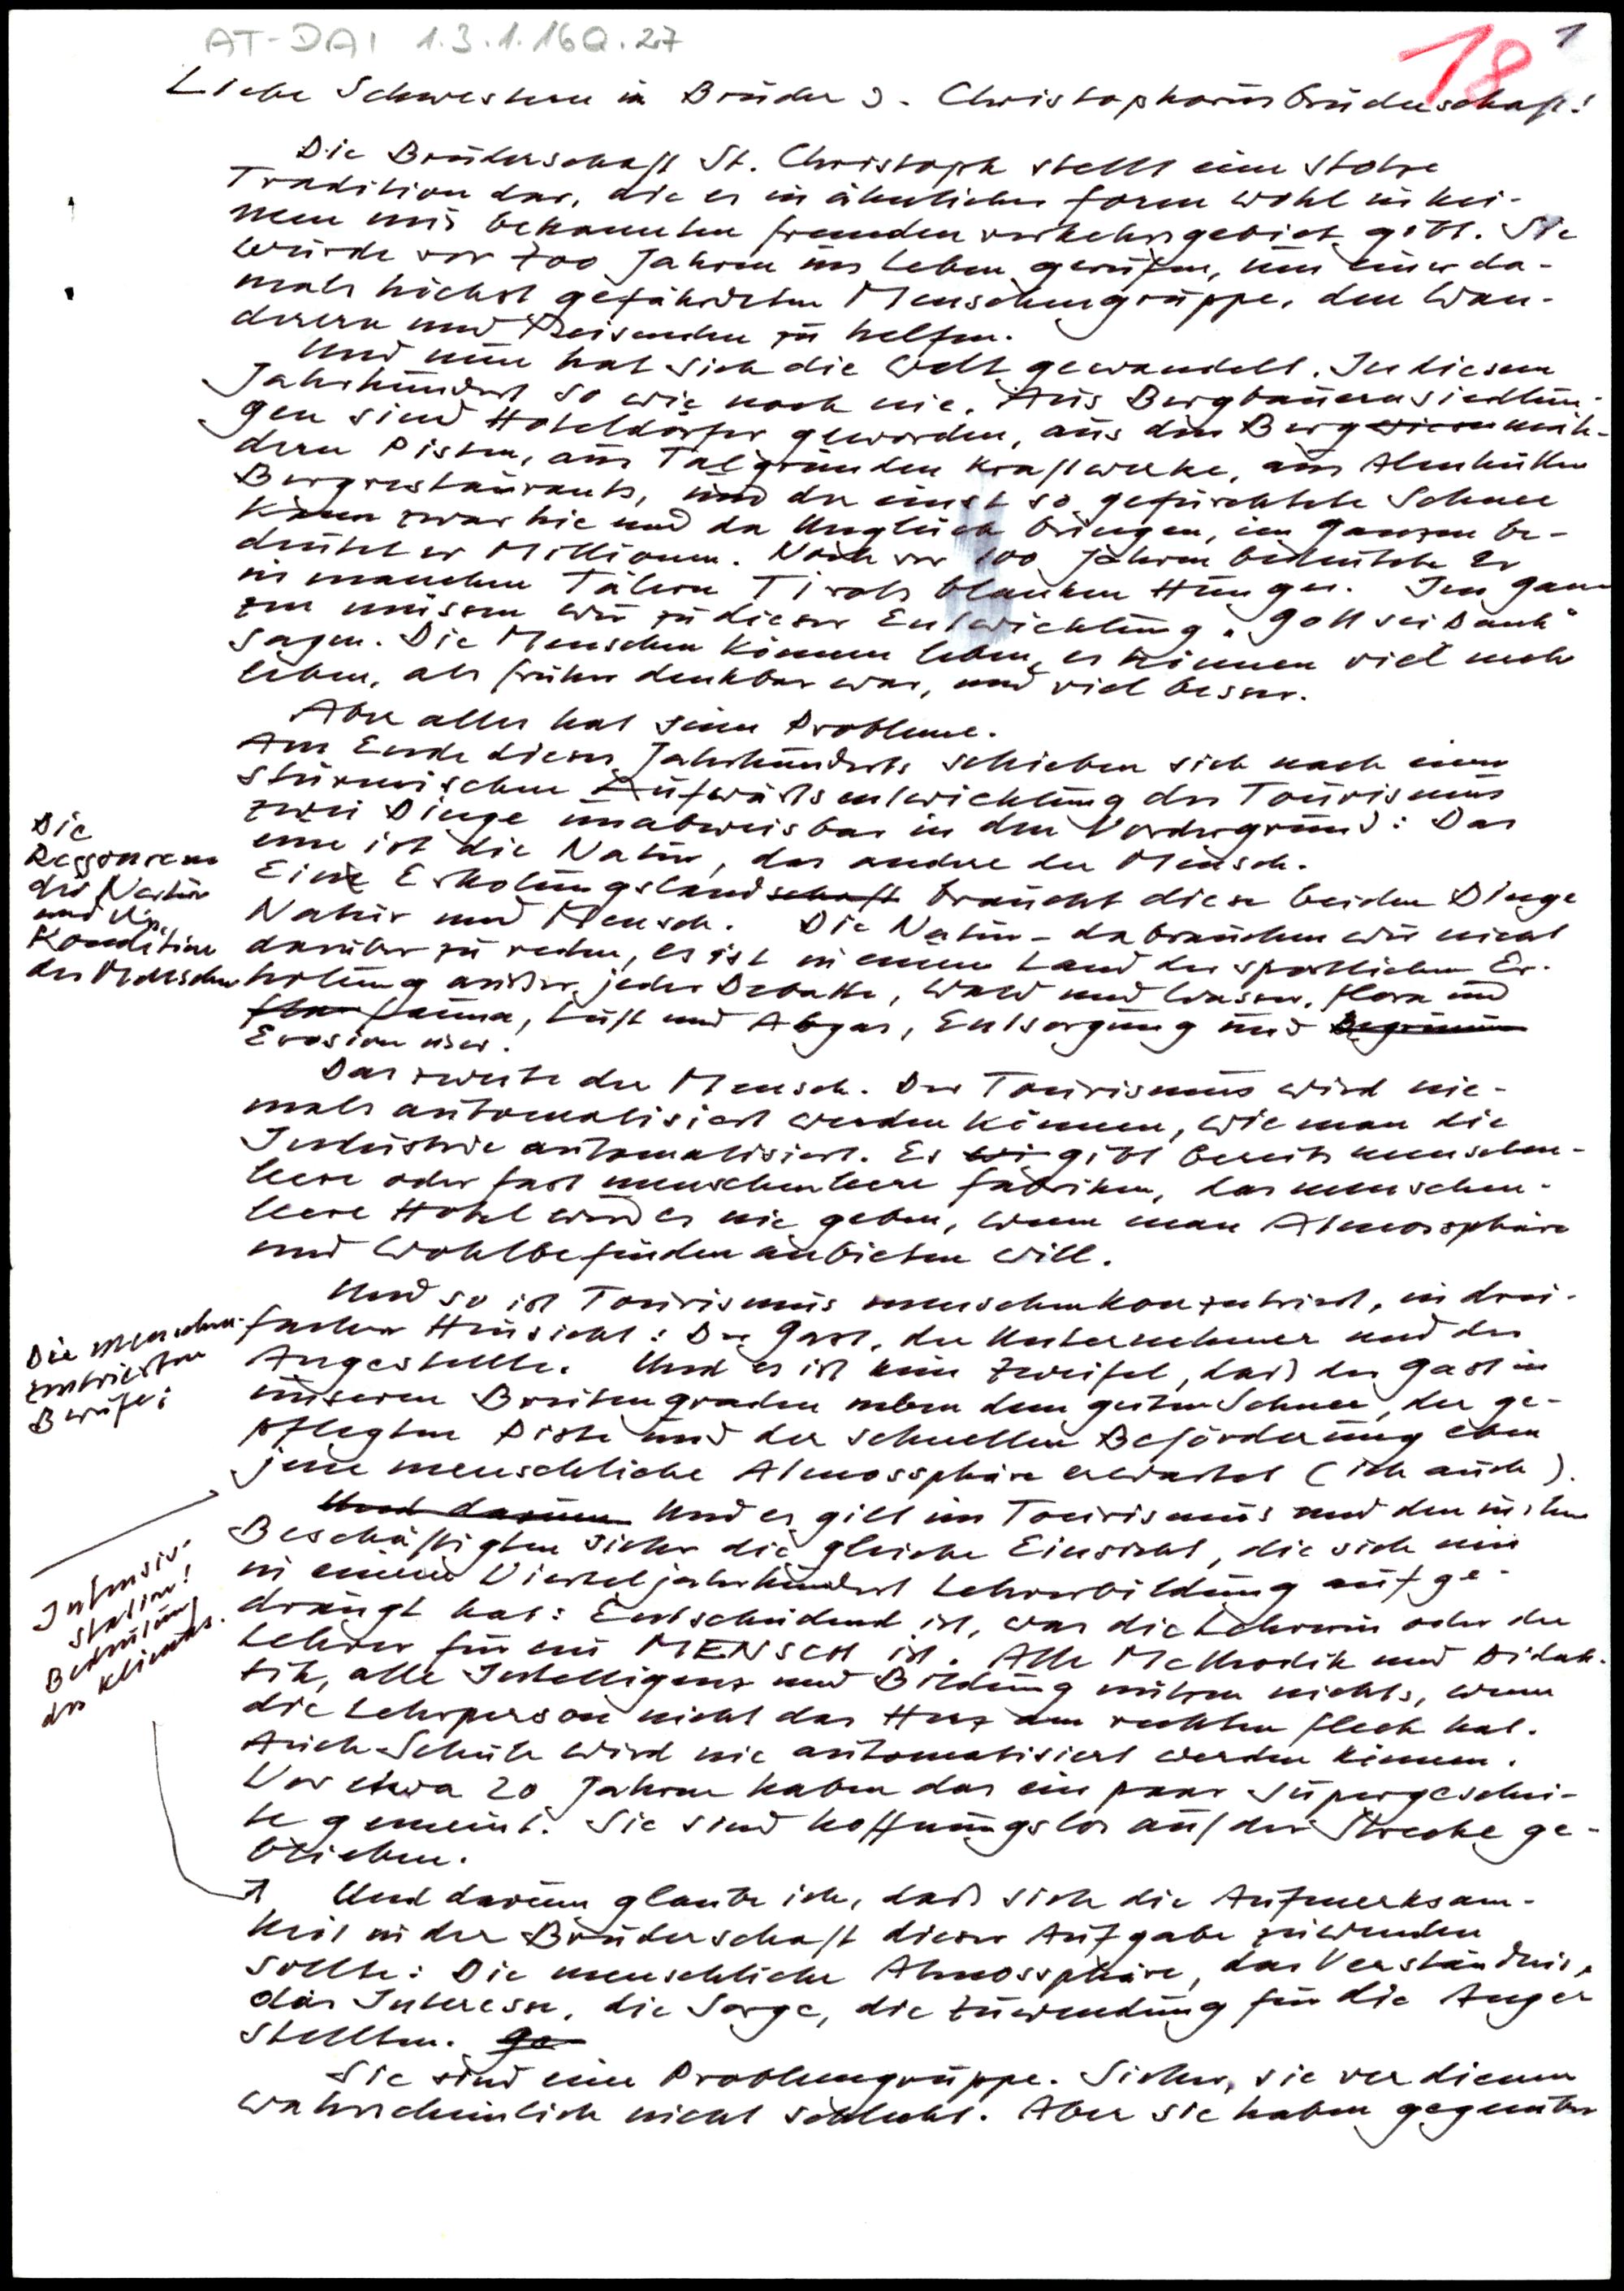 AT-DAI 1.3.1.16Q.27
18
1
Liebe Schwestern u Brüder d. Christophorusbruderschaft!
Die Bruderschaft St. Christoph stellt eine stolze
Tradition dar, die es in ähnlicher Form wohl in kei-
nem mir bekannten Fremdenverkehrsgebiet gibt. Sie
wurde vor 700 Jahren ins Leben gerufen, um einer da-
mals höchst gefährdeten Menschengruppe, den Wan-
derern und Reisenden zu helfen.
Und nun hat sich die Welt gewandelt. In diesem
Jahrhundert so wie noch nie. Aus Bergbauernsiedlun-
gen sind Hoteldörfer geworden, aus den Bergwiesen mäh-
dern Pisten, aus Talgründen Kraftwerke, aus Almhütten
Bergrestaurants, und der einst so gefürchtete Schnee
kann zwar hie und da Unglück bringen, im Ganzen be-
deutet er Millionen. Noch vor 100 Jahren bedeutete er
in manchen Tälern Tirols blanken Hunger. Im Gan
zen müssen wir zu dieser Entwicklung "Gott sei Dank"
sagen. Die Menschen können leben, es können viel mehr
leben, als früher denkbar war, und viel besser.
Aber alles hat seine Probleme.
Am Ende dieses Jahrhunderts schieben sich nach einer
stürmischen Aufwärtsentwicklung des Tourismus
zwei Dinge unabweisbar in den Vordergrund: Das
eine ist die Natur, das andere der Mensch.
Die
Ressourcen
der Natur
und die
Kondition
des Menschen
Eine Erholungslandschaft braucht diese beiden Dinge
Natur und Mensch. Die Natur - da brauchen wir nicht
darüber zu reden, es ist in einem Land der sportlichen Er-
holung außer jeder Debatte, Wald und Wasser, Flora und
Flor Fauna, Luft und Abgas, Entsorgung und
Erosion usw.
Das zweite der Mensch. Der Tourismus wird nie-
mals automatisiert werden können, wie man die
Industrie automatisiert. Es wi gibt bereits menschen-
leere oder fast menschenleere Fabriken, das menschen-
leere Hotel wird es nie geben, wenn man Atmossphäre
und Wohlbefinden anbieten will.
Und so ist Tourismus menschenkonzentriert, in drei-
facher Hinsicht: Der Gast, der Unternehmer und der
Angestellte. Und es ist kein Zweifel, daß der Gast in
unseren Breitengraden neben dem guten Schnee, der ge-
pflegten Piste und der schnellen Beförderung eben
jene menschliche Atmossphäre erwartet (ich auch).
Die menschen-
zentrierten
Berufe:
Und darum Und es gilt im Tourismus und den in ihm
Beschäftigten sicher die gleiche Einsicht, die sich mir
in einem Vierteljahrhundert Lehrerbildung aufge-
drängt hat: Entscheidend ist, was die Lehrerin oder der
Lehrer für ein MENSCH ist. Alle Methodik und Didak-
tik, alle Intelligenz und Bildung nützen nichts, wenn
die Lehrperson nicht das Herz am rechten Fleck hat.
Auch Schule wird nie automatisiert werden können.
Vor etwa 20 Jahren haben das ein paar Supergeschei-
te gemeint. Sie sind hoffnungslos auf der Strecke ge-
blieben.
Intensiv-
station!
Bedeutung
des Klimas.
Und darum glaube ich, daß sich die Aufmerksam-
keit in der Bruderschaft dieser Aufgabe zuwenden
sollte: Die menschliche Atmossphäre, das Verständnis,
das Interesse, die Sorge, die Zuwendung für die Ange
stellten. Ge
Sie sind eine Problemgruppe. Sicher, sie verdienen
wahrscheinlich nicht schlecht. Aber sie haben gegenüber